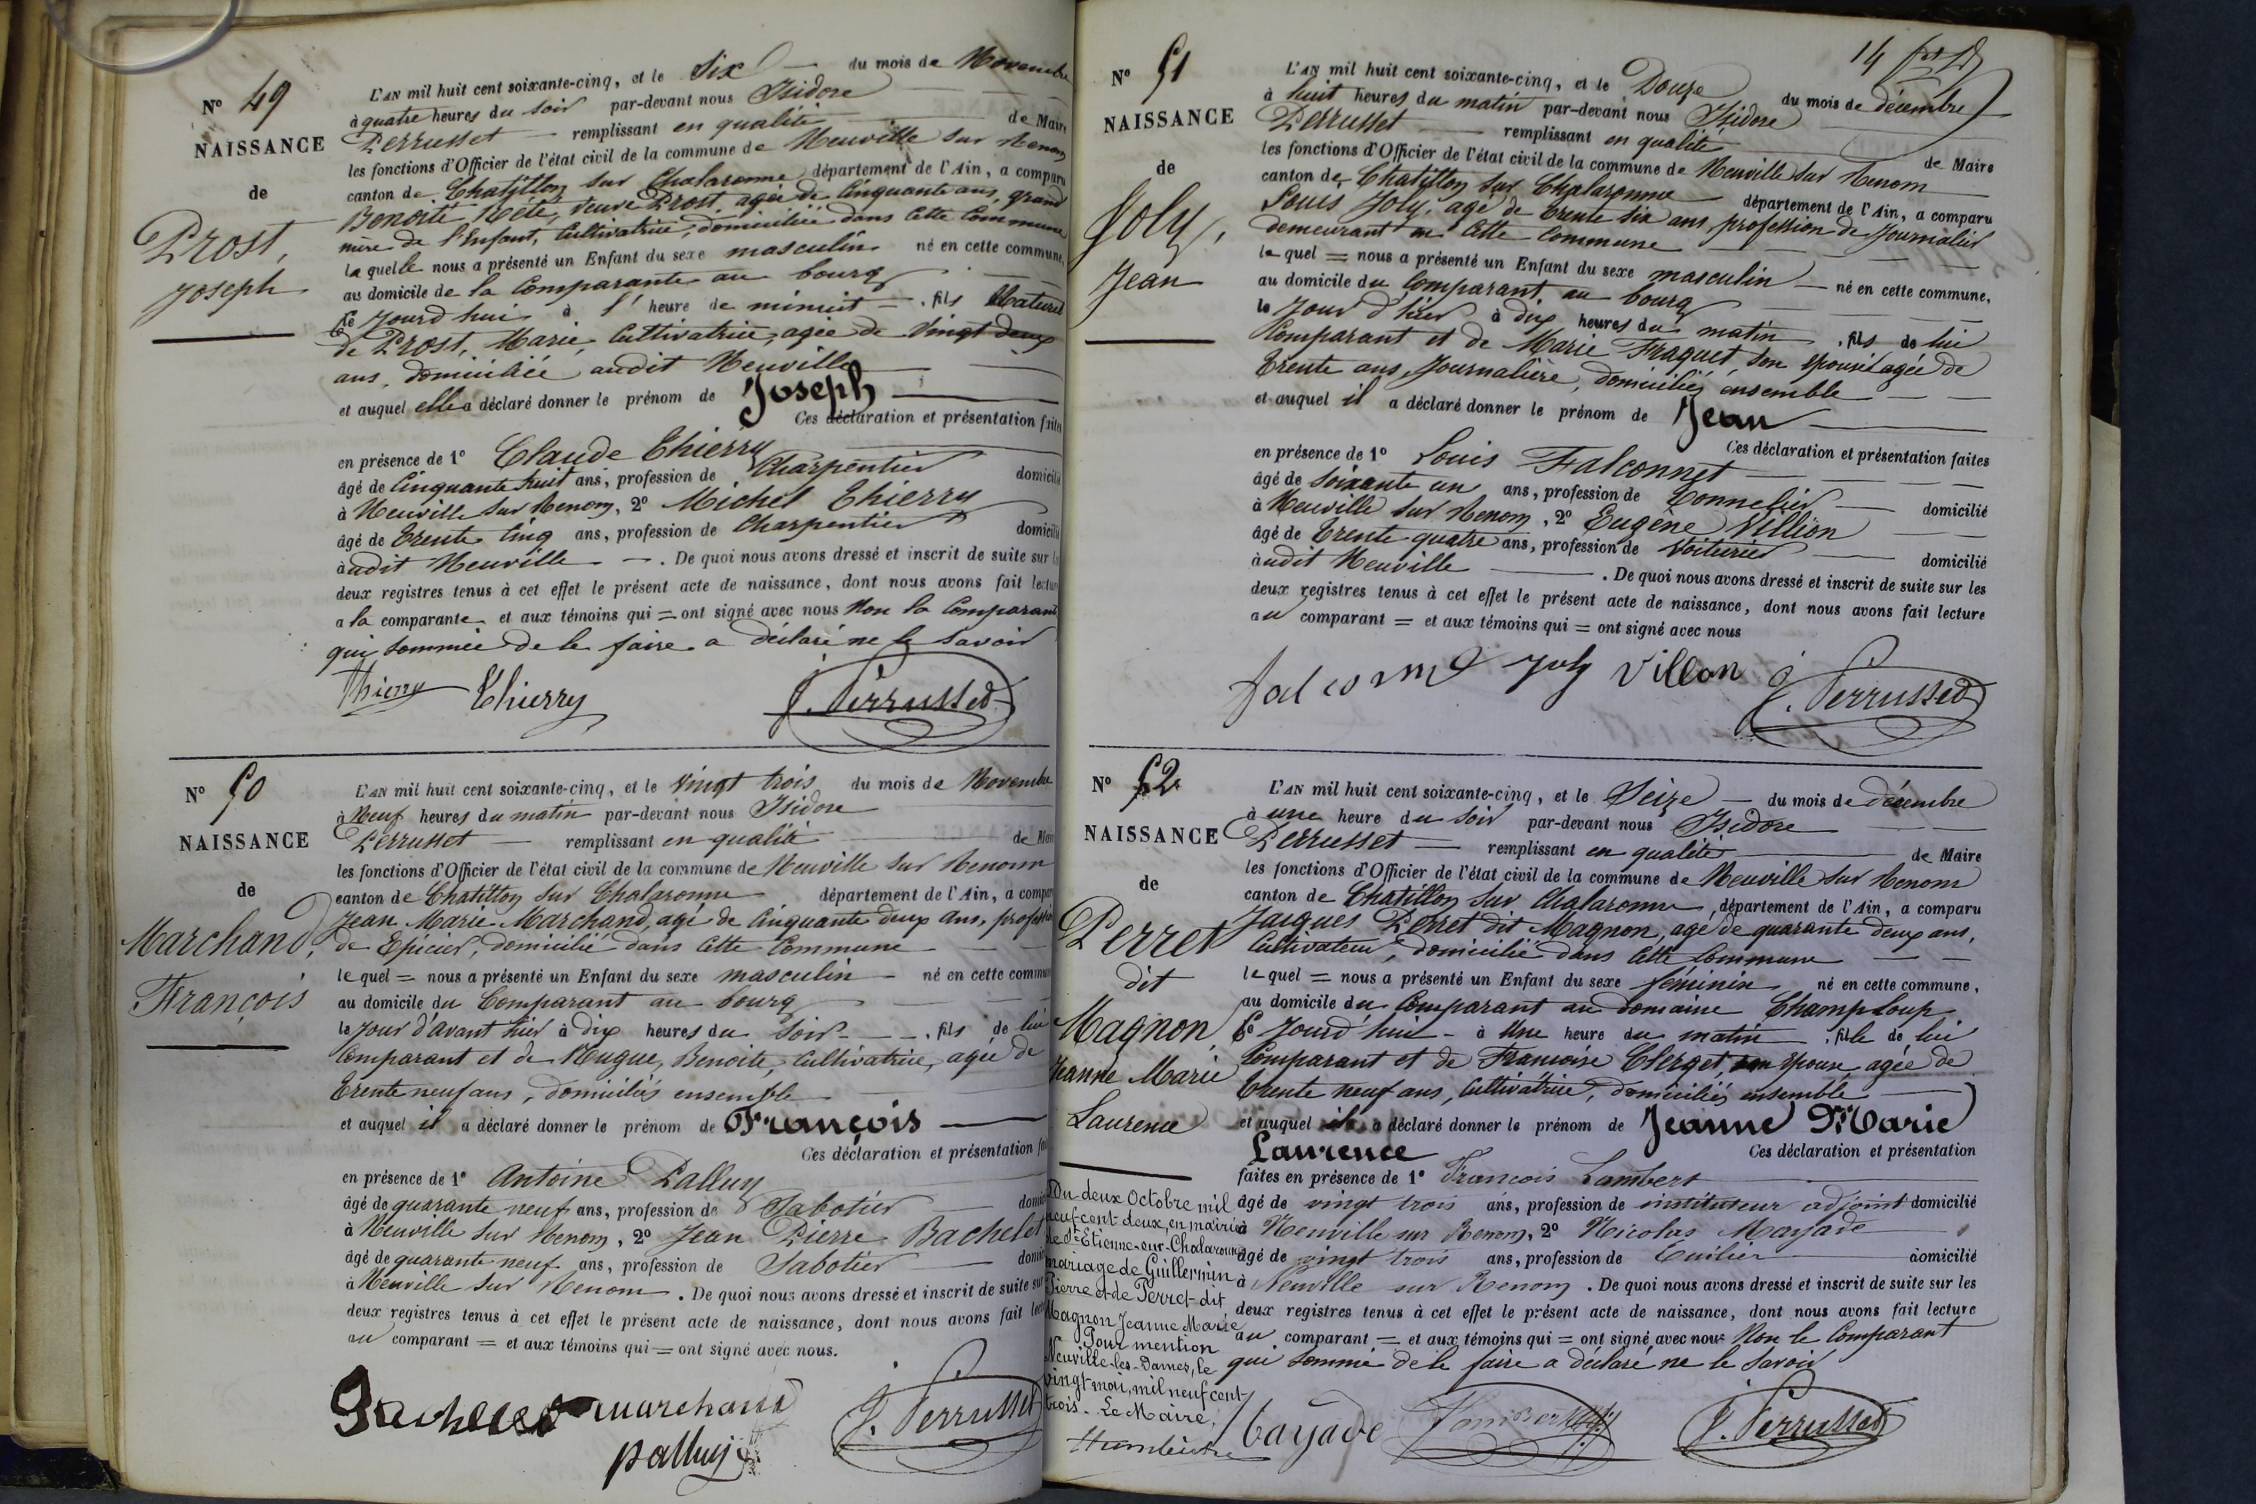 N° 49
NAISSANCE
de
Prost,
Joseph
L'AN mil huit cent soixante-cinq, et le Six du mois de Novembre
à quatre heures du soir par-devant nous Isidore
Perrusset remplissant en qualité de Maire
les fonctions d'Officier de l'état civil de la commune de Neuville sur Renom
canton de Chatillon sur Chalaronne département de l'Ain, a comparu
Benoite Tété, veuve Prost, agée de Cinquante ans, grand
mère de l'Enfant, Cultivatrice, domiciliée dans cette Commune
laquelle nous a présenté un Enfant du sexe masculin né en cette commune,
au domicile de la Comparante au bourg
Ce Jourd'hui à l'heure de minuit fils Naturel
de Prost, Marie, Cultivatrice, agée de Vingt deux
ans, domiciliée audit Neuville
et auquel elle a déclaré donner le prénom de Joseph
Ces déclaration et présentation faites
en présence de 1° Claude Thierry
âgé de Cinquante huit ans, profession de Charpentier domicilié
à Neuville sur Renom, 2° Michel Thierry
âgé de trente cinq ans, profession de Charpentier domicilié
audit Neuville — . De quoi nous avons dressé et inscrit de suite sur les
deux registres tenus à cet effet le présent acte de naissance, dont nous avons fait lecture
a la comparante et aux témoins qui = ont signé avec nous Non la Comparante
qui sommée de le faire a déclaré ne le savoir
Thierry Thierry J. Perrusset
N° 50
NAISSANCE
de
Marchand,
François
L'AN mil huit cent soixante-cinq, et le vingt trois du mois de Novembre
à Neuf heures du matin par-devant nous Isidore
Perrusset — remplissant en qualité de Maire
les fonctions d'Officier de l'état civil de la commune de Neuville sur Renom
canton de Chatillon sur Chalaronne département de l'Ain, a comparu
Jean Marie Marchand, agé de Cinquante deux ans, profession
de Epicier, domicilié dans cette Commune
le quel = nous a présenté un Enfant du sexe masculin — né en cette commune
au domicile du Comparant au bourg
le jour d'avant hier à dix heures du soir — . fils de lui
Comparant et de Nugue, Benoite, Cultivatrice, agée de
trente neuf ans, domiciliés ensemble
et auquel il a déclaré donner le prénom de François
Ces déclaration et présentation faites
en présence de 1° Antoine Palluy
âgé de quarante neuf ans, profession de Sabotier domicilié
à Neuville sur Renom, 2° Jean Pierre Bachelet
âgé de quarante neuf ans, profession de Sabotier domicilié
à Neuville sur Renom . De quoi nous avons dressé et inscrit de suite sur
deux registres tenus à cet effet le présent acte de naissance, dont nous avons fait lecture
au comparant = et aux témoins qui = ont signé avec nous.
Bachelet Marchand
palluy J. Perrusset
14
N° 51
NAISSANCE
de
Joly,
Jean
L'AN mil huit cent soixante-cinq, et le Douze du mois de décembre
à huit heures du matin par-devant nous Isidore
Perrusset — remplissant en qualité de Maire
les fonctions d'Officier de l'état civil de la commune de Neuville sur Renom
canton de Chatillon sur Chalaronne département de l'Ain, a comparu
Louis Joly, agé de trente six ans, profession de Journalier
demeurant en cette Commune
le quel = nous a présenté un Enfant du sexe masculin — né en cette commune,
au domicile du Comparant au bourg
le Jour d'hier à dix heures du matin . fils de lui
Comparant et de Marie Fraquet son épouse agée de
trente ans, Journalière, domiciliés ensemble
et auquel il a déclaré donner le prénom de Jean
Ces déclaration et présentation faites
en présence de 1° Louis Falconnet
âgé de soixante un ans, profession de Tonnelier domicilié
à Neuville sur Renom, 2° Eugène Villion
âgé de trente quatre ans, profession de Voiturier domicilié
audit Neuville . De quoi nous avons dressé et inscrit de suite sur les
deux registres tenus à cet effet le présent acte de naissance, dont nous avons fait lecture
au comparant = et aux témoins qui = ont signé avec nous
Joly Villon J. Perrusset
N° 52
NAISSANCE
de
Perret
dit
Magnon,
Jeanne Marie
Laurence
L'AN mil huit cent soixante-cinq, et le Seize — du mois de décembre
à une heure du soir par-devant nous Isidore
Perrusset — remplissant en qualité de Maire
les fonctions d'Officier de l'état civil de la commune de Neuville sur Renom
canton de Chatillon sur Chalaronne, département de l'Ain, a comparu
Jacques Perret dit Magnon, agé de quarante deux ans,
Cultivateur, domicilié dans cette Commune
le quel = nous a présenté un Enfant du sexe féminin né en cette commune,
au domicile du Comparant au domaine Champloup
Ce Jourd'hui — à Une heure du matin . fille de lui
Comparant et de Francoise Clerget, son épouse agée de
trente neuf ans, Cultivatrice, domiciliés ensemble
et auquel il a déclaré donner le prénom de Jeanne Marie
Laurence Ces déclaration et présentation
faites en présence de 1° François Lambert
âgé de vingt trois ans, profession de instituteur adjoint domicilié
à Neuville sur Renom, 2° Nicolas Mayade
âgé de vingt trois ans, profession de Tuilier domicilié
à Neuville sur Renom . De quoi nous avons dressé et inscrit de suite sur les
deux registres tenus à cet effet le présent acte de naissance, dont nous avons fait lecture
au comparant = et aux témoins qui = ont signé avec nous Non le Comparant
qui sommé de le faire a déclaré ne le savoir
Du deux Octobre mil
neuf cent deux, en mairie
de St Etienne-sur-Chalaronne
mariage de Guillermin
Pierre et de Perret-dit
Magnon Jeanne Marie
Pour mention
Neuville-les-Dames, le
vingt mai, mil neuf cent
trois. Le Maire,
Mayade Lambert J. Perrusset